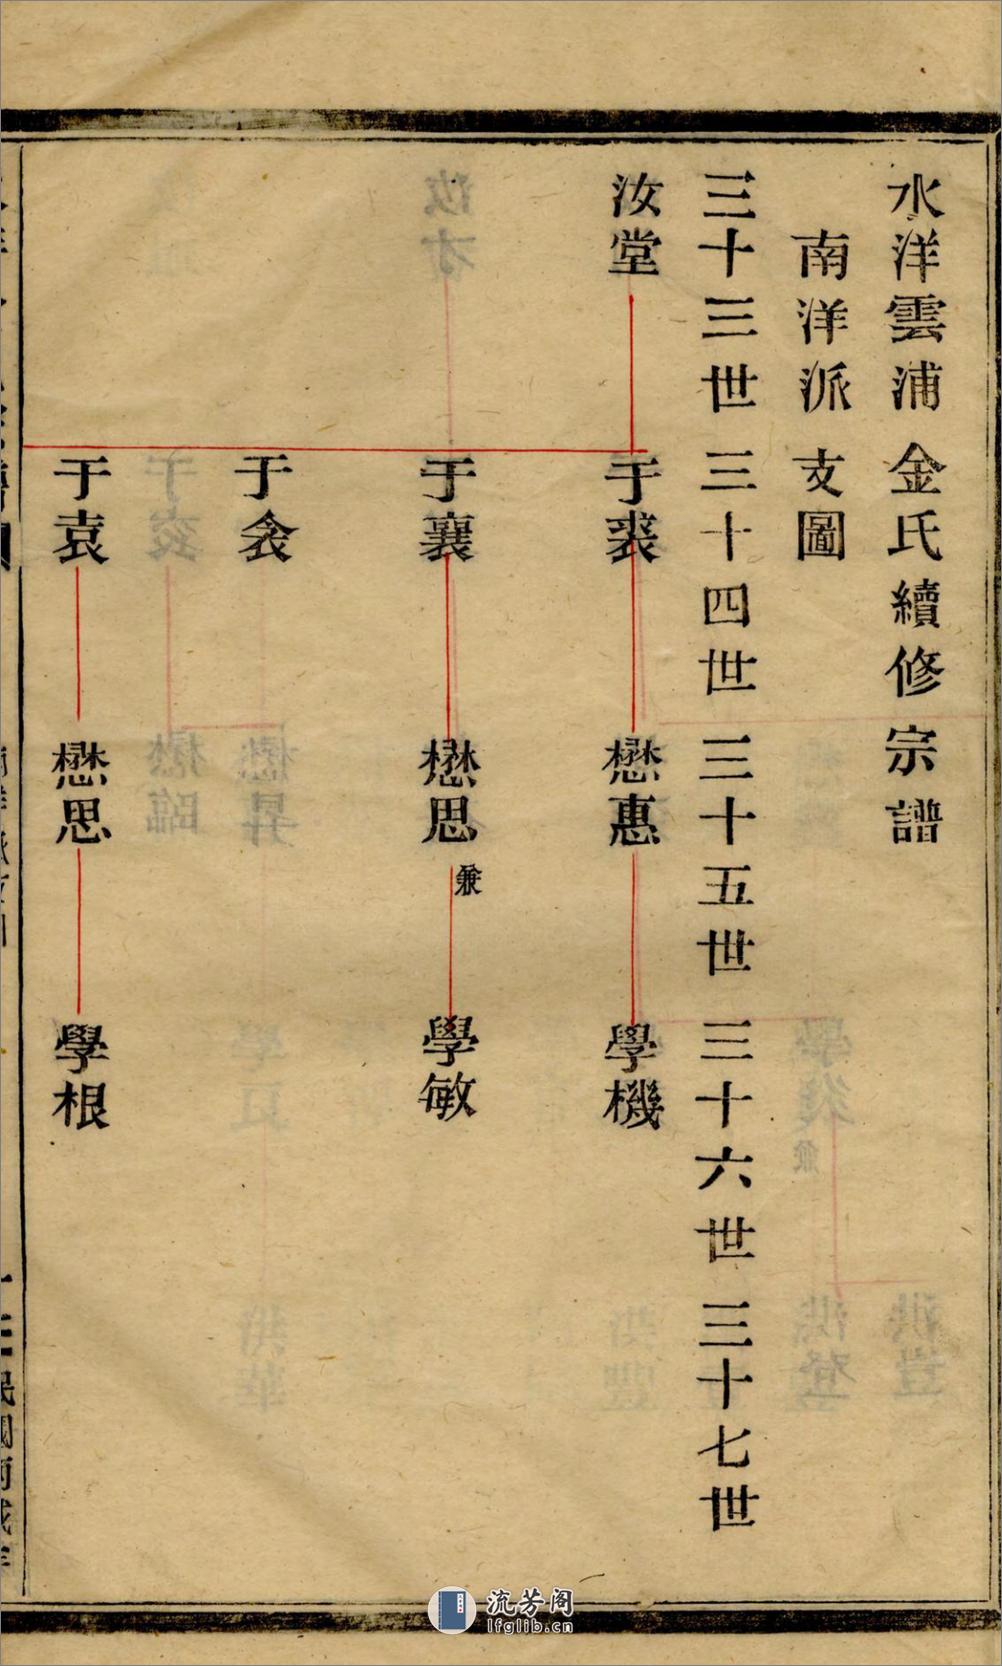 水洋雲浦金氏續修宗譜
南洋派支圖
三十三世 三十四世 三十五世 三十六世 三十七世
汝堂 于裘 懋惠 學機
于襄 懋思 兼 學敏
于衾
于袁 懋思 學根
流芳阁
lfglib.cn